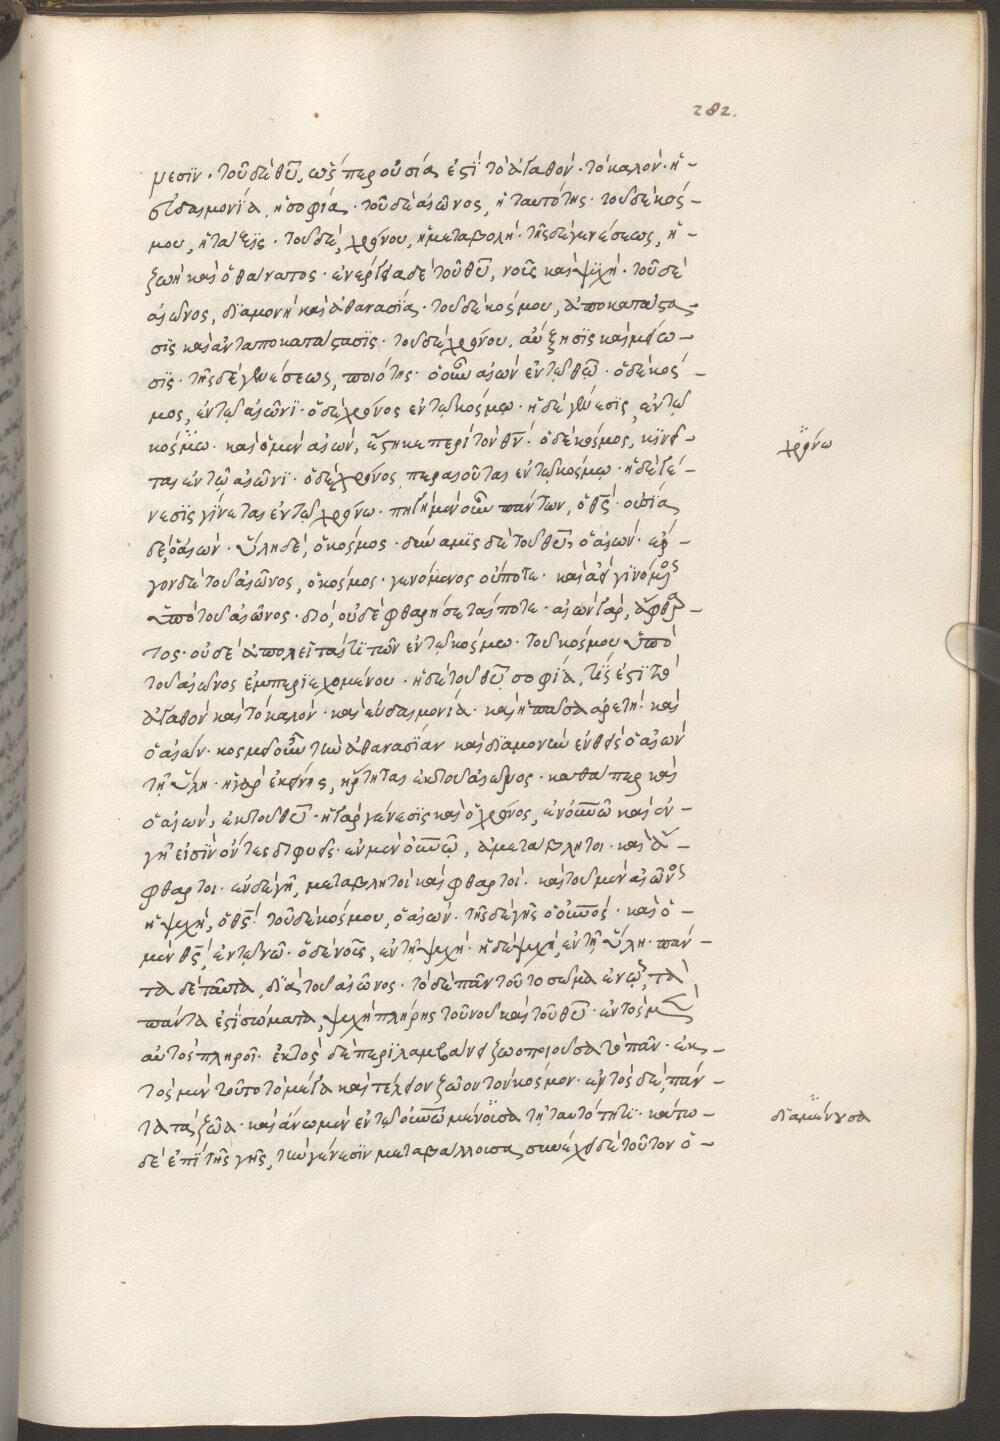 282.
μεσϊν · τοῦ δὲ θ͞υ, ὥσπερ οὐσία ἐστὶ τὸ ἀγαθόν · τὸ καλόν · ἡ –
εὐδαιμονία, ἡ σοφία · τοῦ δὲ αἰῶνος, ἡ ταυτότης · τοῦ δὲ κόσ –
μου, ἡ τάξϊς · τοῦ δὲ, χρόνου, ἡ μεταβολή · τῆς δὲ γενέσεως, ἡ –
ζωὴ καὶ ὁ θάνατος · ἐνέργεια δὲ τοῦ θ͞υ, νοῦς καὶ ψυχή · τοῦ δὲ
αἰῶνος, δϊαμονὴ καὶ ἀθανασϊα · τοῦ δὲ κόσμου, ἀποκατάστα –
σϊς καὶ ἀνταποκατάστασϊς · τοῦ δὲ χρόνου, αὔξησϊς καὶ μείω –
σϊς · τῆς δὲ γενέσεως, ποιότης · ὁ οὖν αἰὼν ἐν τῷ θ͞ω · ὁ δὲ κόσ –
μος, ἐν τῷ αἰῶνϊ · ὁ δὲ χρόνος ἐν τῷ κόσμῳ · ἡ δὲ γένεσϊς, ἐν τῷ
κόσμω · καὶ ὁ μὲν αἰὼν, ἕστηκε περὶ τὸν θ͞ν · ὁ δὲ κόσμος, κϊνεῖ –
ται ἐν τῷ αἰῶνϊ · ὁ δὲ χρόνος περαιοῦται ἐν τῷ κόσμῳ · ἡ δὲ γέ –
νεσϊς γίνεται ἐν τῷ χρόνω · πηγὴ μὲν οὖν πάντων, ὁ θ͞ς · οὐσία
δὲ, ὁ αἰών · ὕλη δὲ, ὁ κόσμος · δύναμϊς δὲ τοῦ θ͞υ, ὁ αἰών · ἔρ –
γον δὲ τοῦ αἰῶνος, ὁ κόσμος · γενόμενος οὔποτε · καὶ ἀεὶ γϊνόμενος
ὑπὸ τοῦ αἰῶνος · διὸ, οὐδὲ φθαρήσεταί ποτε · αἰὼν γὰρ, ἄφθαρ –
τος · οὐδὲ ἀπολεῖταί τϊ τῶν ἐν τῷ κόσμω · τοῦ κόσμου ὑπὸ
τοῦ αἰῶνος ἐμπερϊεχομένου · ἡ δὲ τοῦ θ͞υ σοφία, τίς ἐστϊ τὸ
ἀγαθὸν καὶ τὸ καλόν · καὶ εὐδαιμονία · καὶ ἡ πᾶσα ἀρετή · καὶ
ὁ αἰών · κοσμεῖ οὖν τὴν ἀθανασϊαν καὶ δϊαμονὴν ἐνθεὶς ὁ αἰὼν
τῇ ὕλη · ἡ γὰρ ἐκείνης, ἤρτηται ἐκ τοῦ αἰῶνος · καθάπερ καὶ
ὁ αἰὼν, ἐκ τοῦ θ͞υ · ἡ γὰρ γένεσϊς καὶ ὁ χρόνος, ἐν οὐ͞νῶ καὶ ἐν
γῇ εἰσϊν ὄντες διφυεῖς · ἐν μὲν οὐ͞νῶ, ἀμετάβλητοι · καὶ ἄ –
φθαρτοι · ἐν δὲ γῇ, μεταβλητοὶ καὶ φθαρτοί · καὶ τοῦ μὲν αἰῶνος
ἡ ψυχὴ, ὁ θ͞ς · τοῦ δὲ κόσμου, ὁ αἰών · τῆς δὲ γῆς ὁ οὐ͞νός · καὶ ὁ –
μὲν θ͞ς, ἐν τῷ νῶ · ὁ δὲ νοῦς, ἐν τῇ ψυχῇ · ἡ δὲ ψυχὴ, ἐν τῇ ὕλη · πάν –
τα δὲ ταῦτα, δϊὰ τοῦ αἰῶνος · τὸ δὲ πᾶν τοῦτο σῶμα ἐν ᾧ, τὰ
πάντα ἐστϊ σώματα, ψυχὴ πλήρης τοῦ νοῦ καὶ τοῦ θ͞υ · ἐντὸς μὲν
αὐτὸς πληροῖ · ἐκτὸς δὲ περϊλαμβάνει ζωοποιοῦσα τὸ πᾶν · ἐκ –
τὸς μὲν τοῦτο τὸ μέγα καὶ τέλειον ζῶον τὸν κόσμον · ἐντὸς δὲ, πάν –
τα τὰ ζῶα · καὶ ἄνω μὲν ἐν τῷ οὐ͞νῶ μένουσα τῇ ταυτότητϊ · κάτω –
δὲ ἐπϊ τῆς γῆς, τὴν γένεσϊν μεταβάλλουσα, συνέχει δὲ τοῦτον ὁ –
χρόνω
δϊαμένουσα